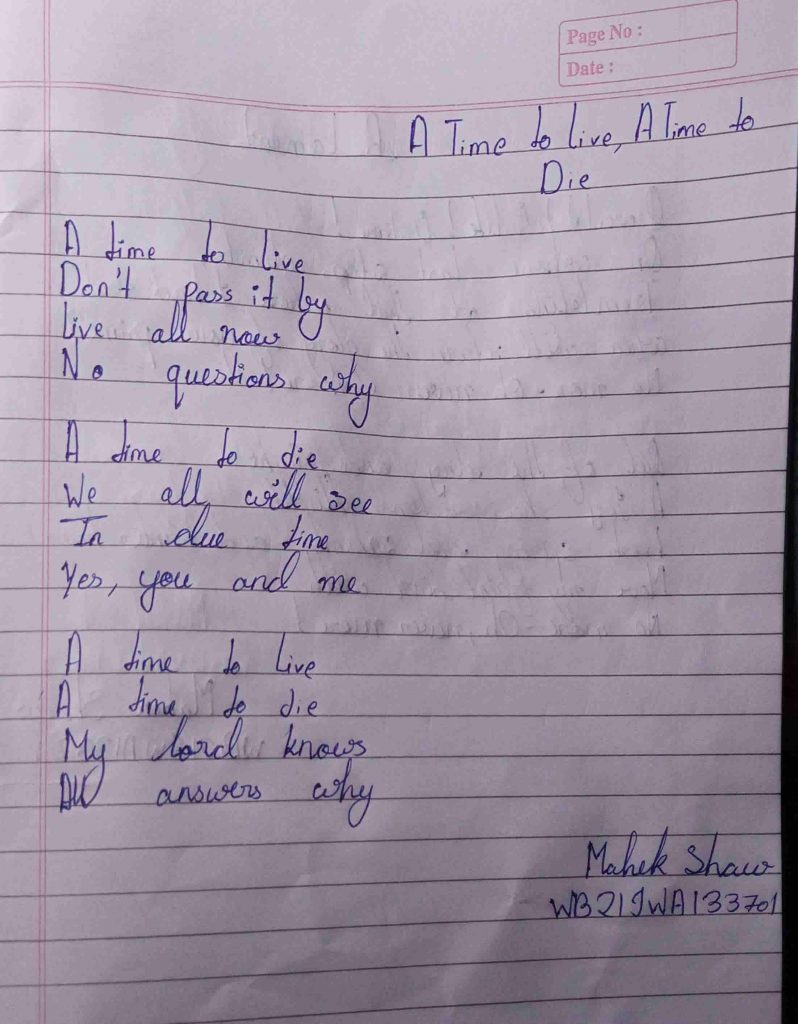 Page No :
Date :
A Time to live, A Time to
Die
A time to live
Don't pass it by
Live all now
No questions why
A time to die
We all will see
In due time
Yes, you and me
A time to live
A time to die
My lord knows
All answers why
Mahek Shaw
WB21SWA133701